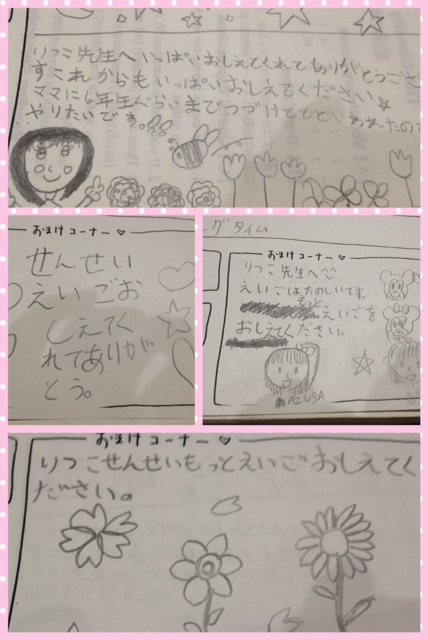 りつこ先生へいっぱいおしえてくれてありがとうござ
すこれからもいっぱいおしえてください
ママに6年生ぐらいまでつづけててといわれたので
やりたいです。
おまけコーナー♡
せんせい
えいごお
しえてく
れてありが
とう。
グタイム
おまけコーナー♡
りつこ先生へ
えいごはたのしいです。
もっと
えいごを
おしえてください。
AZUSA
おまけコーナー♡
りつこせんせいもっとえいごおしえてく
ださい。